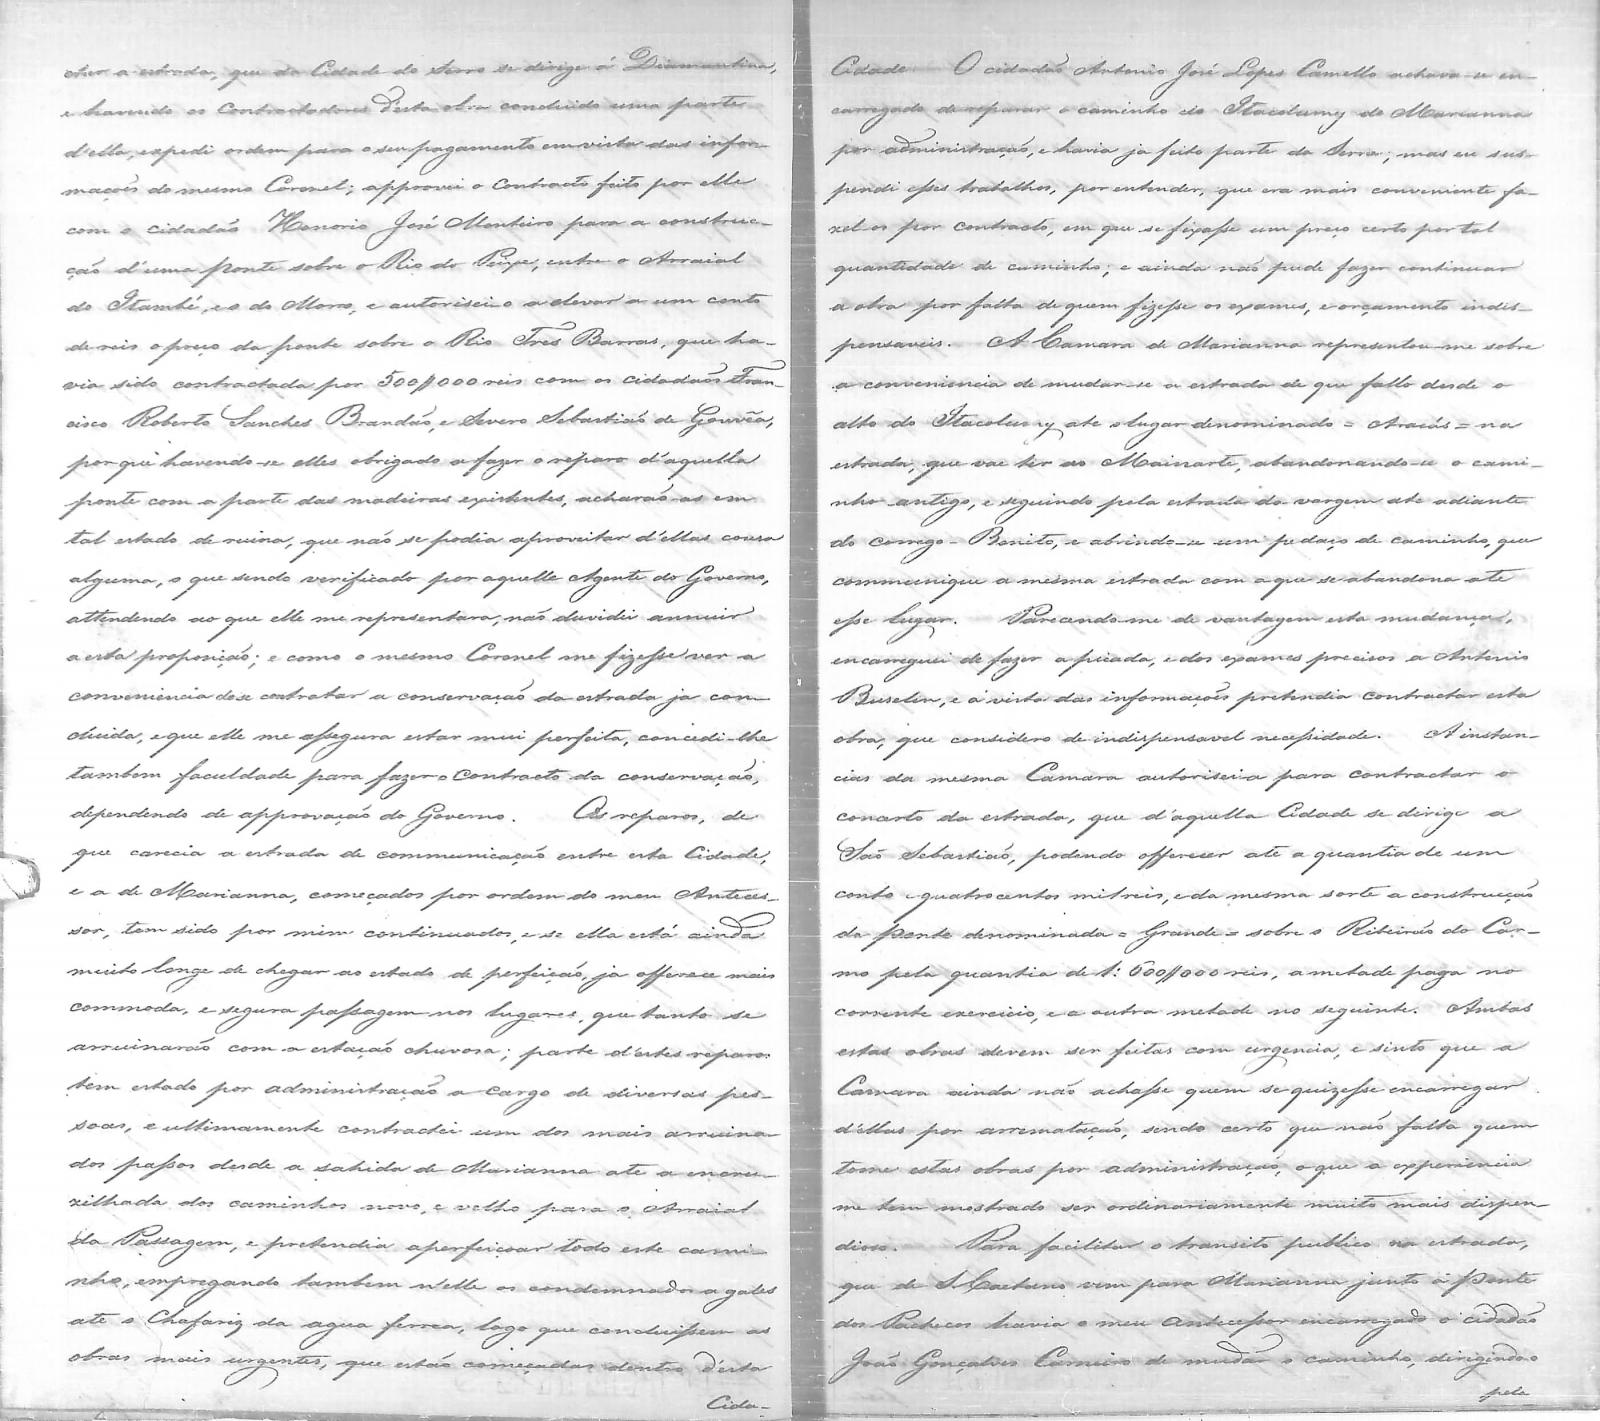 a estrada, que da Cidade do Serro se dirige á Diamantina,
e havendo os Contractadores d'esta obra concluido uma parte
d'ella, expedi ordem para o seu pagamento em vista das infor-
mações do mesmo Coronel; approvei o Contracto feito por elle
com o cidadão Honorio José Monteiro para a construc-
ção d'uma ponte sobre o Rio do Peixe, entre o Arraial
do Itambé, e o do Morro, e autorisei-o a elevar a um conto
de reis o preço da ponte sobre o Rio Tres Barras, que ha-
via sido contractada por 500$000 reis com os cidadãos Fran-
cisco Roberto Sanches Brandão, e Severo Sebastião de Gouvêa,
por què havendo-se elles obrigado a fazer o reparo d'aquella
ponte com a parte das madeiras existentes, acharão-as em
tal estado de ruina, que não se podia aproveitar d'ellas cousa
alguma, o que sendo verificado por aquelle Agente do Governo,
attendendo ao que elle me representara, não duvidei annuir
a esta proposição; e como o mesmo Coronel me fizesse ver a
conveniencia de se contratar a conservação da estrada ja con-
cluida, e que elle me assegura estar mui perfeita, concedi-lhe
tambem faculdade para fazer o Contracto da conservação,
dependendo de approvação do Governo. Os reparos, de
que carecia a estrada de communicação entre esta Cidade,
e a de Marianna, começados por ordem do meu Anteces-
sor, tem sido por mim continuados, e se ella está ainda
muito longe de chegar ao estado de perfeição, ja offerece mais
commoda, e segura passagem nos lugares, que tanto se
arruinarão com a estação chuvosa; parte d'estes reparos
tem estado por administração a cargo de diversas pes-
soas, e ultimamente contractei um dos mais arruina-
dos passos desde a sahida de Marianna ate a encru-
zilhada dos caminhos novo, e velho para o Arraial
da Passagem, e pretendia aperfeiçoar todo este cami-
nho, empregando tambem n'elle os condemnados a galés
ate o Chafariz da agua ferrea, logo que concluissem as
obras mais urgentes, que estão começadas dentro d'esta
Cida-
Cidade O cidadão Antonio José Lopes Camello achava-se en-
carregado de reparar o caminho do Itacolumy de Marianna
por administração, e havia ja feito parte da Serra; mas eu sus-
pendi esses trabalhos, por entender, que era mais conveniente fa-
zel-os por contracto, em que se fixasse um preço certo por tal
quantidade de caminho; e ainda não pude fazer continuar
a obra por falta de quem fizesse os exames, e orçamento indis-
pensaveis. A Camara de Marianna representou-me sobre
a conveniencia de mudar-se a estrada de que fallo desde o
alto do Itacolumy ate o lugar denominado = Aracás = na
estrada, que vae ter ao Mainarte, abandonando-se o cami-
nho antigo, e seguindo pela estrada da vargem ate adiante
do corrego-Bonito, e abrindo-se um pedaço de caminho, que
communique a mesma estrada com a que se abandona ate
esse lugar. Parecendo-me de vantagem esta mudança,
encarreguei de fazer a picada, e dos exames precisos a Antonio
Buselin, e á vista das informações pretendia contractar esta
obra, que considero de indispensavel necessidade. A instan-
cias da mesma Camara autorisei-a para contractar o
concerto da estrada, que d'aquella Cidade se dirige a
São Sebastião, podendo offerecer até a quantia de um
conto e quatrocentos mil reis, e da mesma sorte a construcção
da ponte denominada = Grande = sobre o Ribeirão do Car-
mo pela quantia de 1:600$000 reis, a metade paga no
corrente exercicio, e a outra metade no seguinte. Ambas
estas obras devem ser feitas com urgencia, e sinto que a
Camara ainda não achasse quem se quizesse encarregar
d'ellas por arrematação, sendo certo que não falta quem
tome estas obras por administração, o que a experiencia
me tem mostrado ser ordinariamente muito mais dispen-
dioso. Para facilitar o transito publico na estrada,
que de S. Caetano vem para Marianna junto á ponte
dos Pachecos havia o meu Antecessor encarregado o cidadão
João Gonçalves Carneiro de mudar o caminho, dirigindo-o
pela